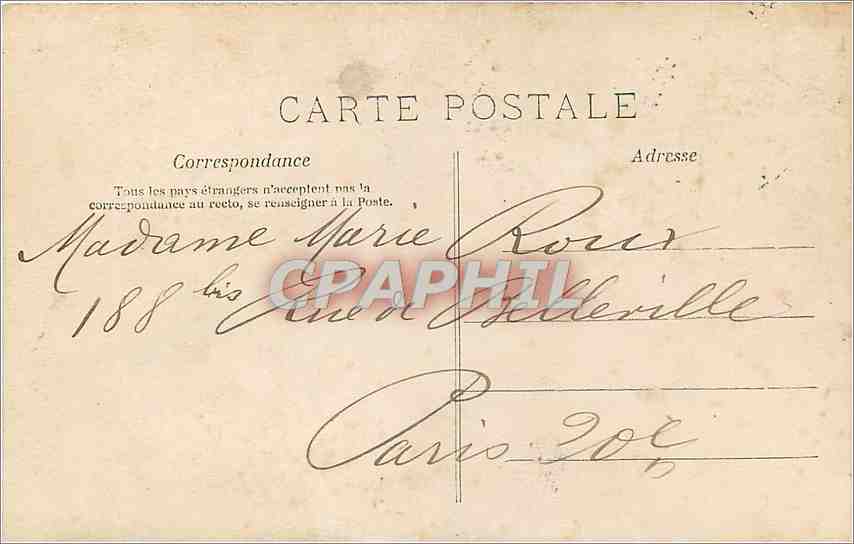 CARTE POSTALE
Correspondance
Adresse
Tous les pays étrangers n'acceptent pas la
correspondance au recto, se renseigner à la Poste.
Madame Marie Roux
188 bis Rue de Belleville
Paris 20e
CPAPHIL